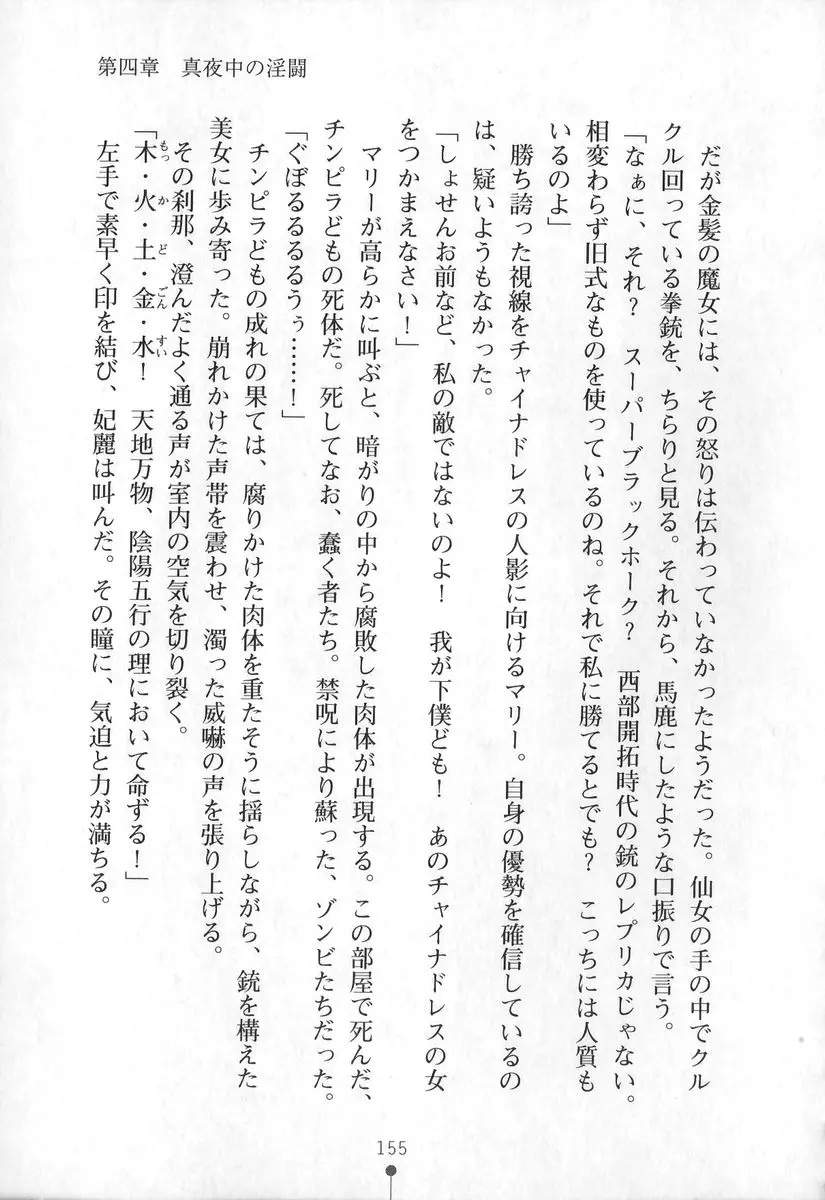 第四章　真夜中の淫闘
　だが金髪の魔女には、その怒りは伝わっていなかったようだった。仙女の手の中でクル
クル回っている拳銃を、ちらりと見る。それから、馬鹿にしたような口振りで言う。
「なぁに、それ？　スーパーブラックホーク？　西部開拓時代の銃のレプリカじゃない。
相変わらず旧式なものを使っているのね。それで私に勝てるとでも？　こっちには人質も
いるのよ」
　勝ち誇った視線をチャイナドレスの人影に向けるマリー。自身の優勢を確信しているの
は、疑いようもなかった。
「しょせんお前など、私の敵ではないのよ！　我が下僕ども！　あのチャイナドレスの女
をつかまえなさい！」
　マリーが高らかに叫ぶと、暗がりの中から腐敗した肉体が出現する。この部屋で死んだ、
チンピラどもの死体だ。死してなお、蠢く者たち。禁呪により蘇った、ゾンビたちだった。
「ぐぼるるるるうぅ……！」
　チンピラどもの成れの果ては、腐りかけた肉体を重たそうに揺らしながら、銃を構えた
美女に歩み寄った。崩れかけた声帯を震わせ、濁った威嚇の声を張り上げる。
　その刹那、澄んだよく通る声が室内の空気を切り裂く。
「木・火・土・金・水！　天地万物、陰陽五行の理において命ずる！」
もっ　か　ど　ごん　すい
　左手で素早く印を結び、妃麗は叫んだ。その瞳に、気迫と力が満ちる。
155